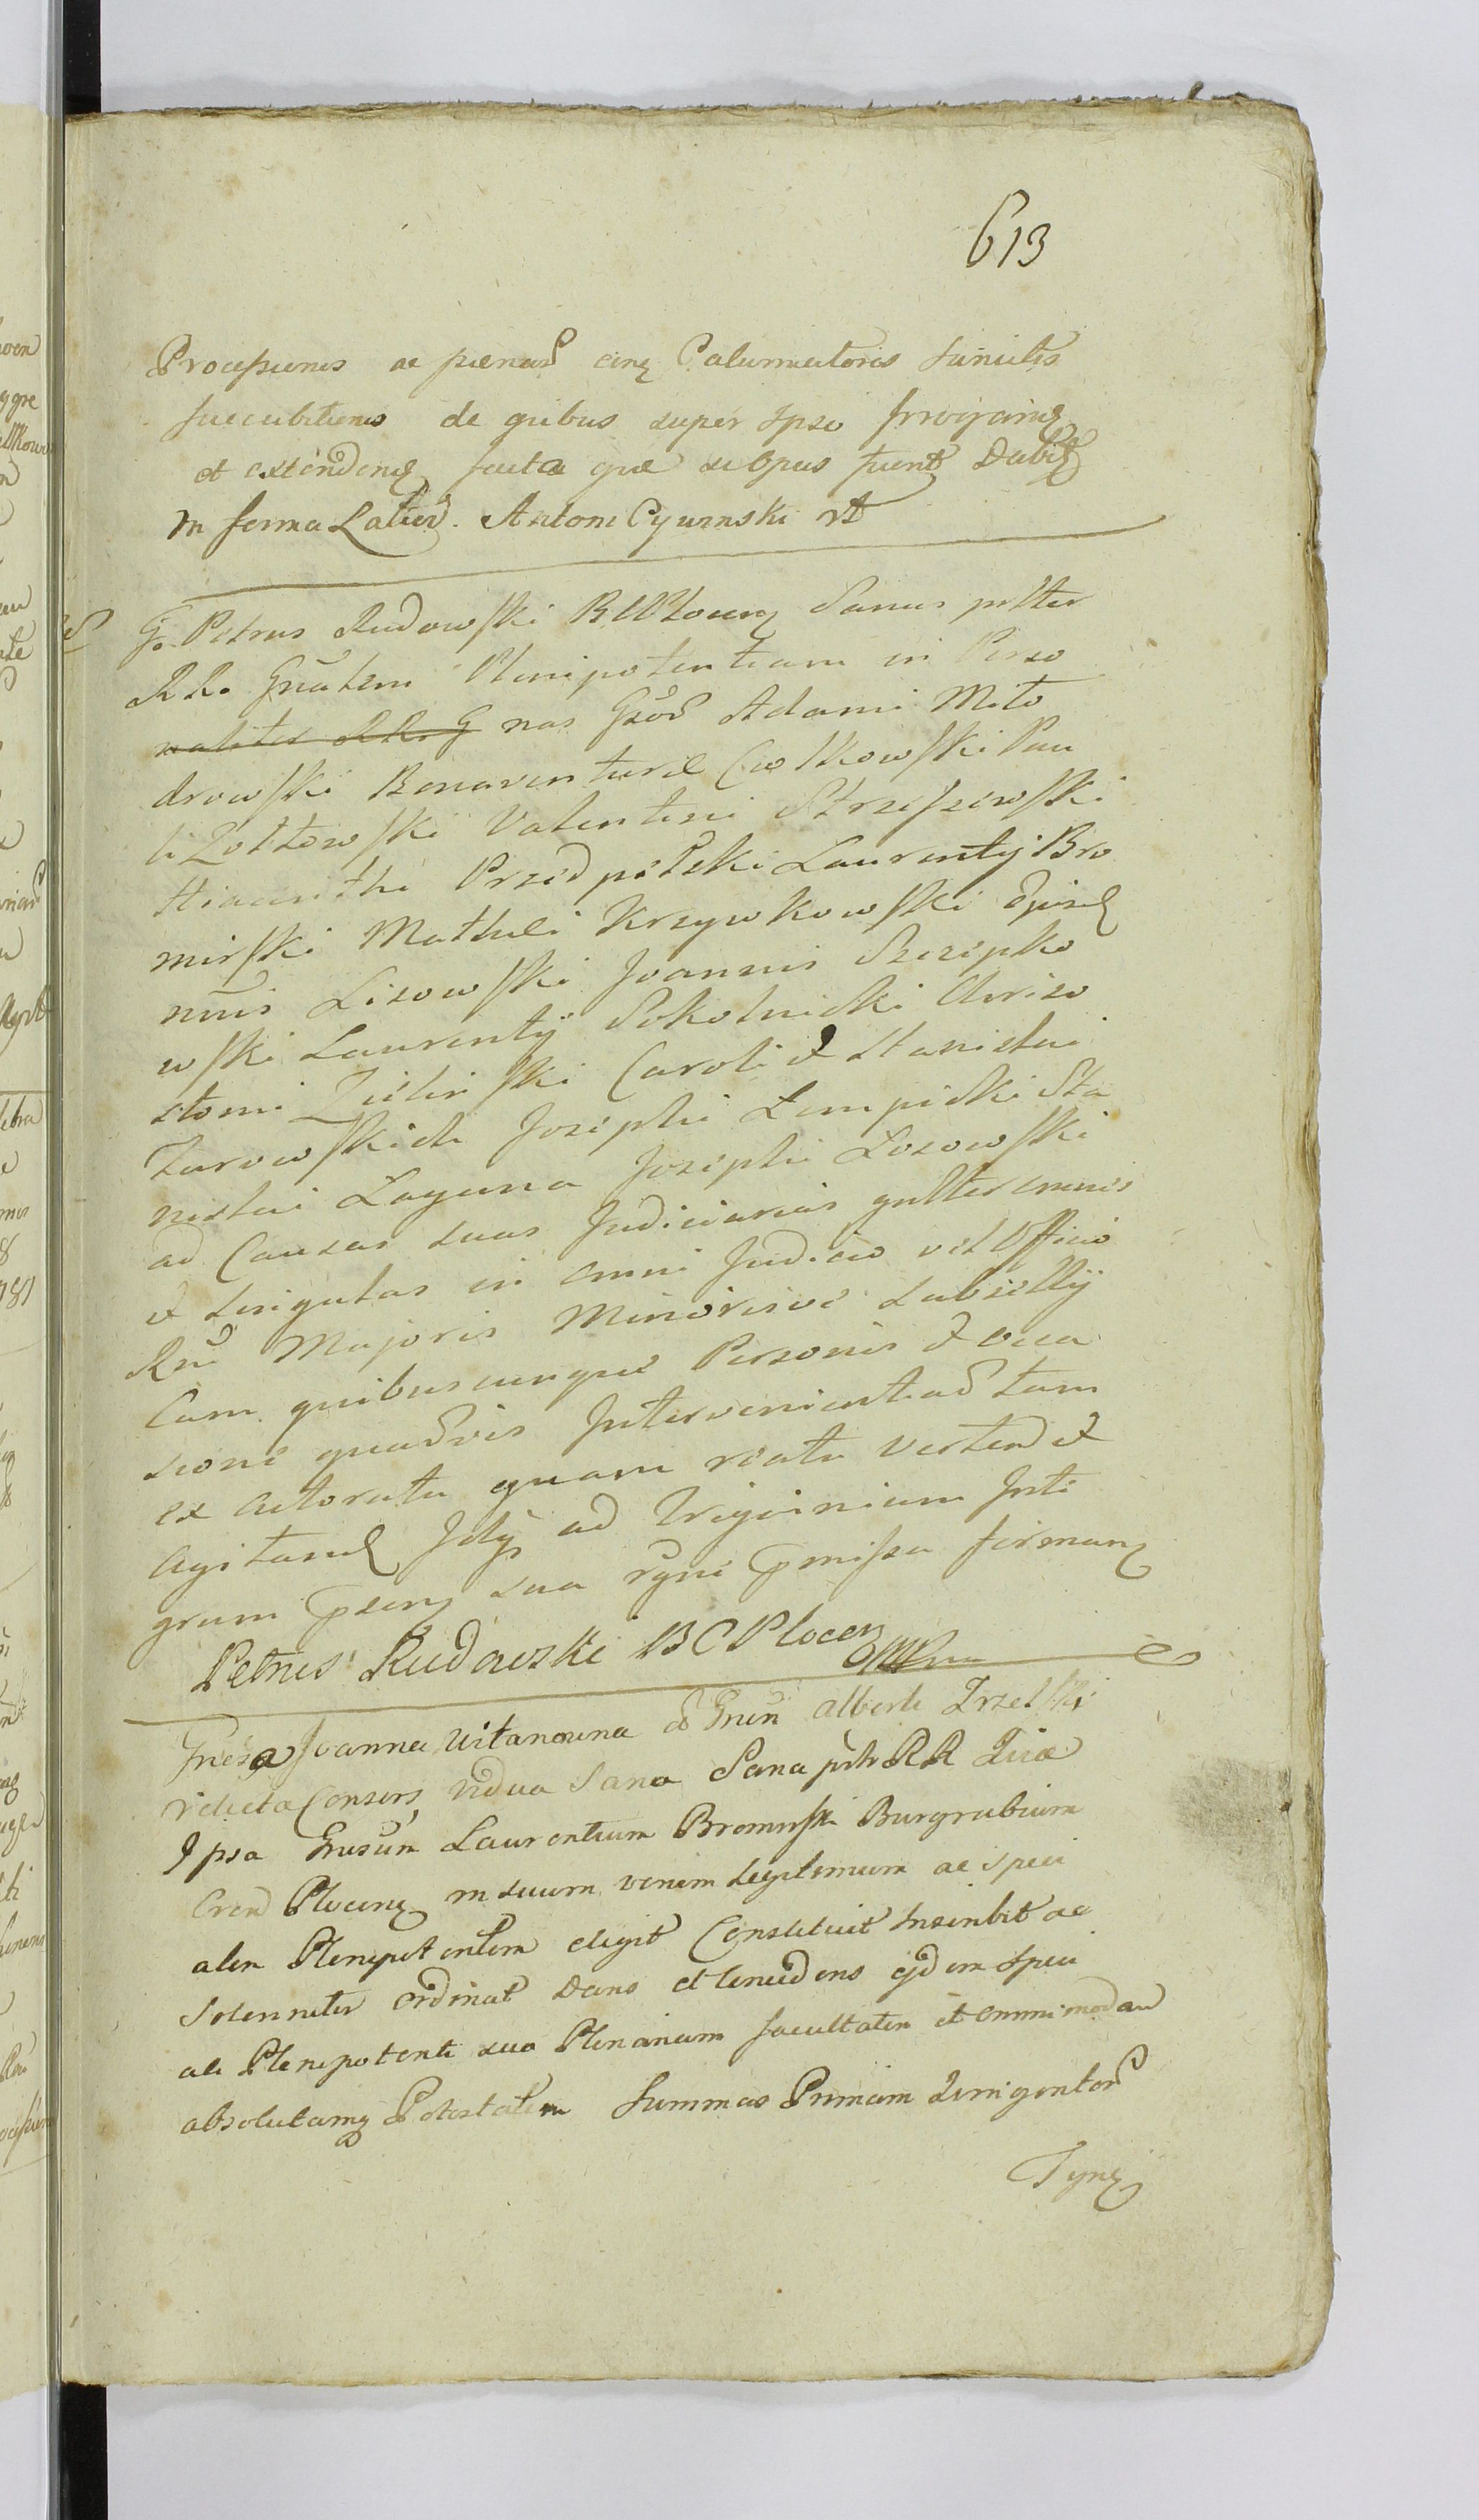 613
Processiones ac pænas cirq Calumniatoris similis
succubitiones de quibus super ipso
et extendenq juxta quæ ubpus Dabit
in forma Latior. Antoni Cyurnski
G. Petrus Rudowski BCPlocenq Sanus prltter
RR. Gnãlem Plenipotentiam in Perso
naliter RR. G nas Gsos Adami Mito
drowski Bonaventuræ Ciołkowski Pau
li Zołtowski Valentini Strzeszewski
Hiacinthi Przedpełski Laurentÿ Bro
mirski Mathæi Krzywkowski
Lisowski Joannis Szczepko
wski Laurentÿ Sokolnicki Chrizo
stomi Zieliński Caroli et Stanislai
Zurowskich Josephi Łempicki Sta
nislai Łaguna Josephi Łosowski
ad Causas suas Judiciarias gnlter omnes
et singulas in omni Judicio vel Officio
Rni Majoris Minorisve subsellÿ
Cum quibuscunque Personis et occa
sione quadvis Intervenientiad tam
ex actoratu quam reatu vertend et
agitand ad Trigvinium Inte
grum pseny sua pmissa firmanq
Petrus Rudowski BC Plocen
Gnesa Joanna Witanowna Gnẽn Alberti Trzelski
relicta Consors vidua Sana Sana prlr RR Quæ
Ipsa Gnesum Laurentium Bromirski Burgrabium
Cren Plocenq in suum verum Legitimum ac speci
alem Plenipotentem eligit Constituit Inscribit ac
Solenniter ordinat Dans et Concedens ejdem Speci
ali Plenipotenti suo Plenariam facultatem et omnimodam
absolutamq Potestatem Summas